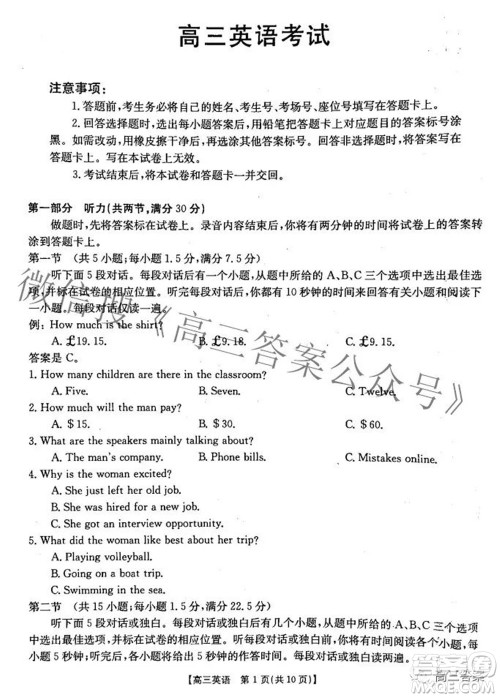 高三英语考试
注意事项:
1.答题前,考生务必将自己的姓名、考生号、考场号、座位号填写在答题卡上。
2.回答选择题时,选出每小题答案后,用铅笔把答题卡上对应题目的答案标号涂
黑。如需改动,用橡皮擦干净后,再选涂其他答案标号。回答非选择题时,将答案写
在答题卡上。写在本试卷上无效。
3.考试结束后,将本试卷和答题卡一并交回。
第一部分 听力(共两节,满分30分)
做题时,先将答案标在试卷上。录音内容结束后,你将有两分钟的时间将试卷上的答案转
涂到答题卡上。
第一节 (共5小题;每小题1.5分,满分7.5分)
听下面5段对话。每段对话后有一个小题,从题中所给的A、B、C三个选项中选出最佳选
项,并标在试卷的相应位置。听完每段对话后,你都有10秒钟的时间来回答有关小题和阅读下
一小题。每段对话仅读一遍。
例:How much is the shirt?
A. £19.15. B. £9.18. C. £9.15.
答案是C。
1. How many children are there in the classroom?
A. Five. B. Seven. C. Twelve.
2. How much will the man pay?
A. $15. B. $30. C. $60.
3. What are the speakers mainly talking about?
A. The man's company. B. Phone bills. C. Mistakes online.
4. Why is the woman excited?
A. She just left her old job.
B. She was hired for a new job.
C. She got an interview opportunity.
5. What did the woman like best about her trip?
A. Playing volleyball.
B. Going on a boat trip.
C. Swimming in the sea.
第二节 (共15小题;每小题1.5分,满分22.5分)
听下面5段对话或独白。每段对话或独白后有几个小题,从题中所给的A、B、C三个选项
中选出最佳选项,并标在试卷的相应位置。听每段对话或独白前,你将有时间阅读各个小题,每
小题5秒钟;听完后,各小题将给出5秒钟的作答时间。每段对话或独白读两遍。
【高三英语 第1页(共10页)】
微信搜《高三答案公众号》
高三答案